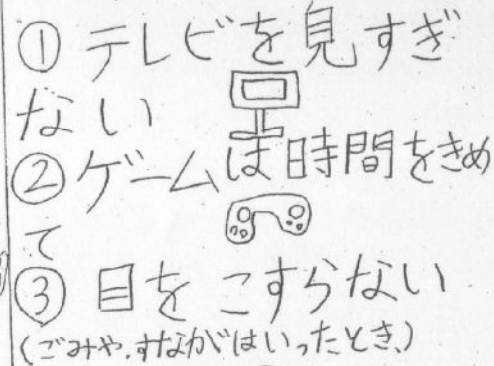 ① テレビを見すぎ
ない
② ゲームは時間をきめ
て
③ 目をこすらない
(ごみや、すながはいったとき、)